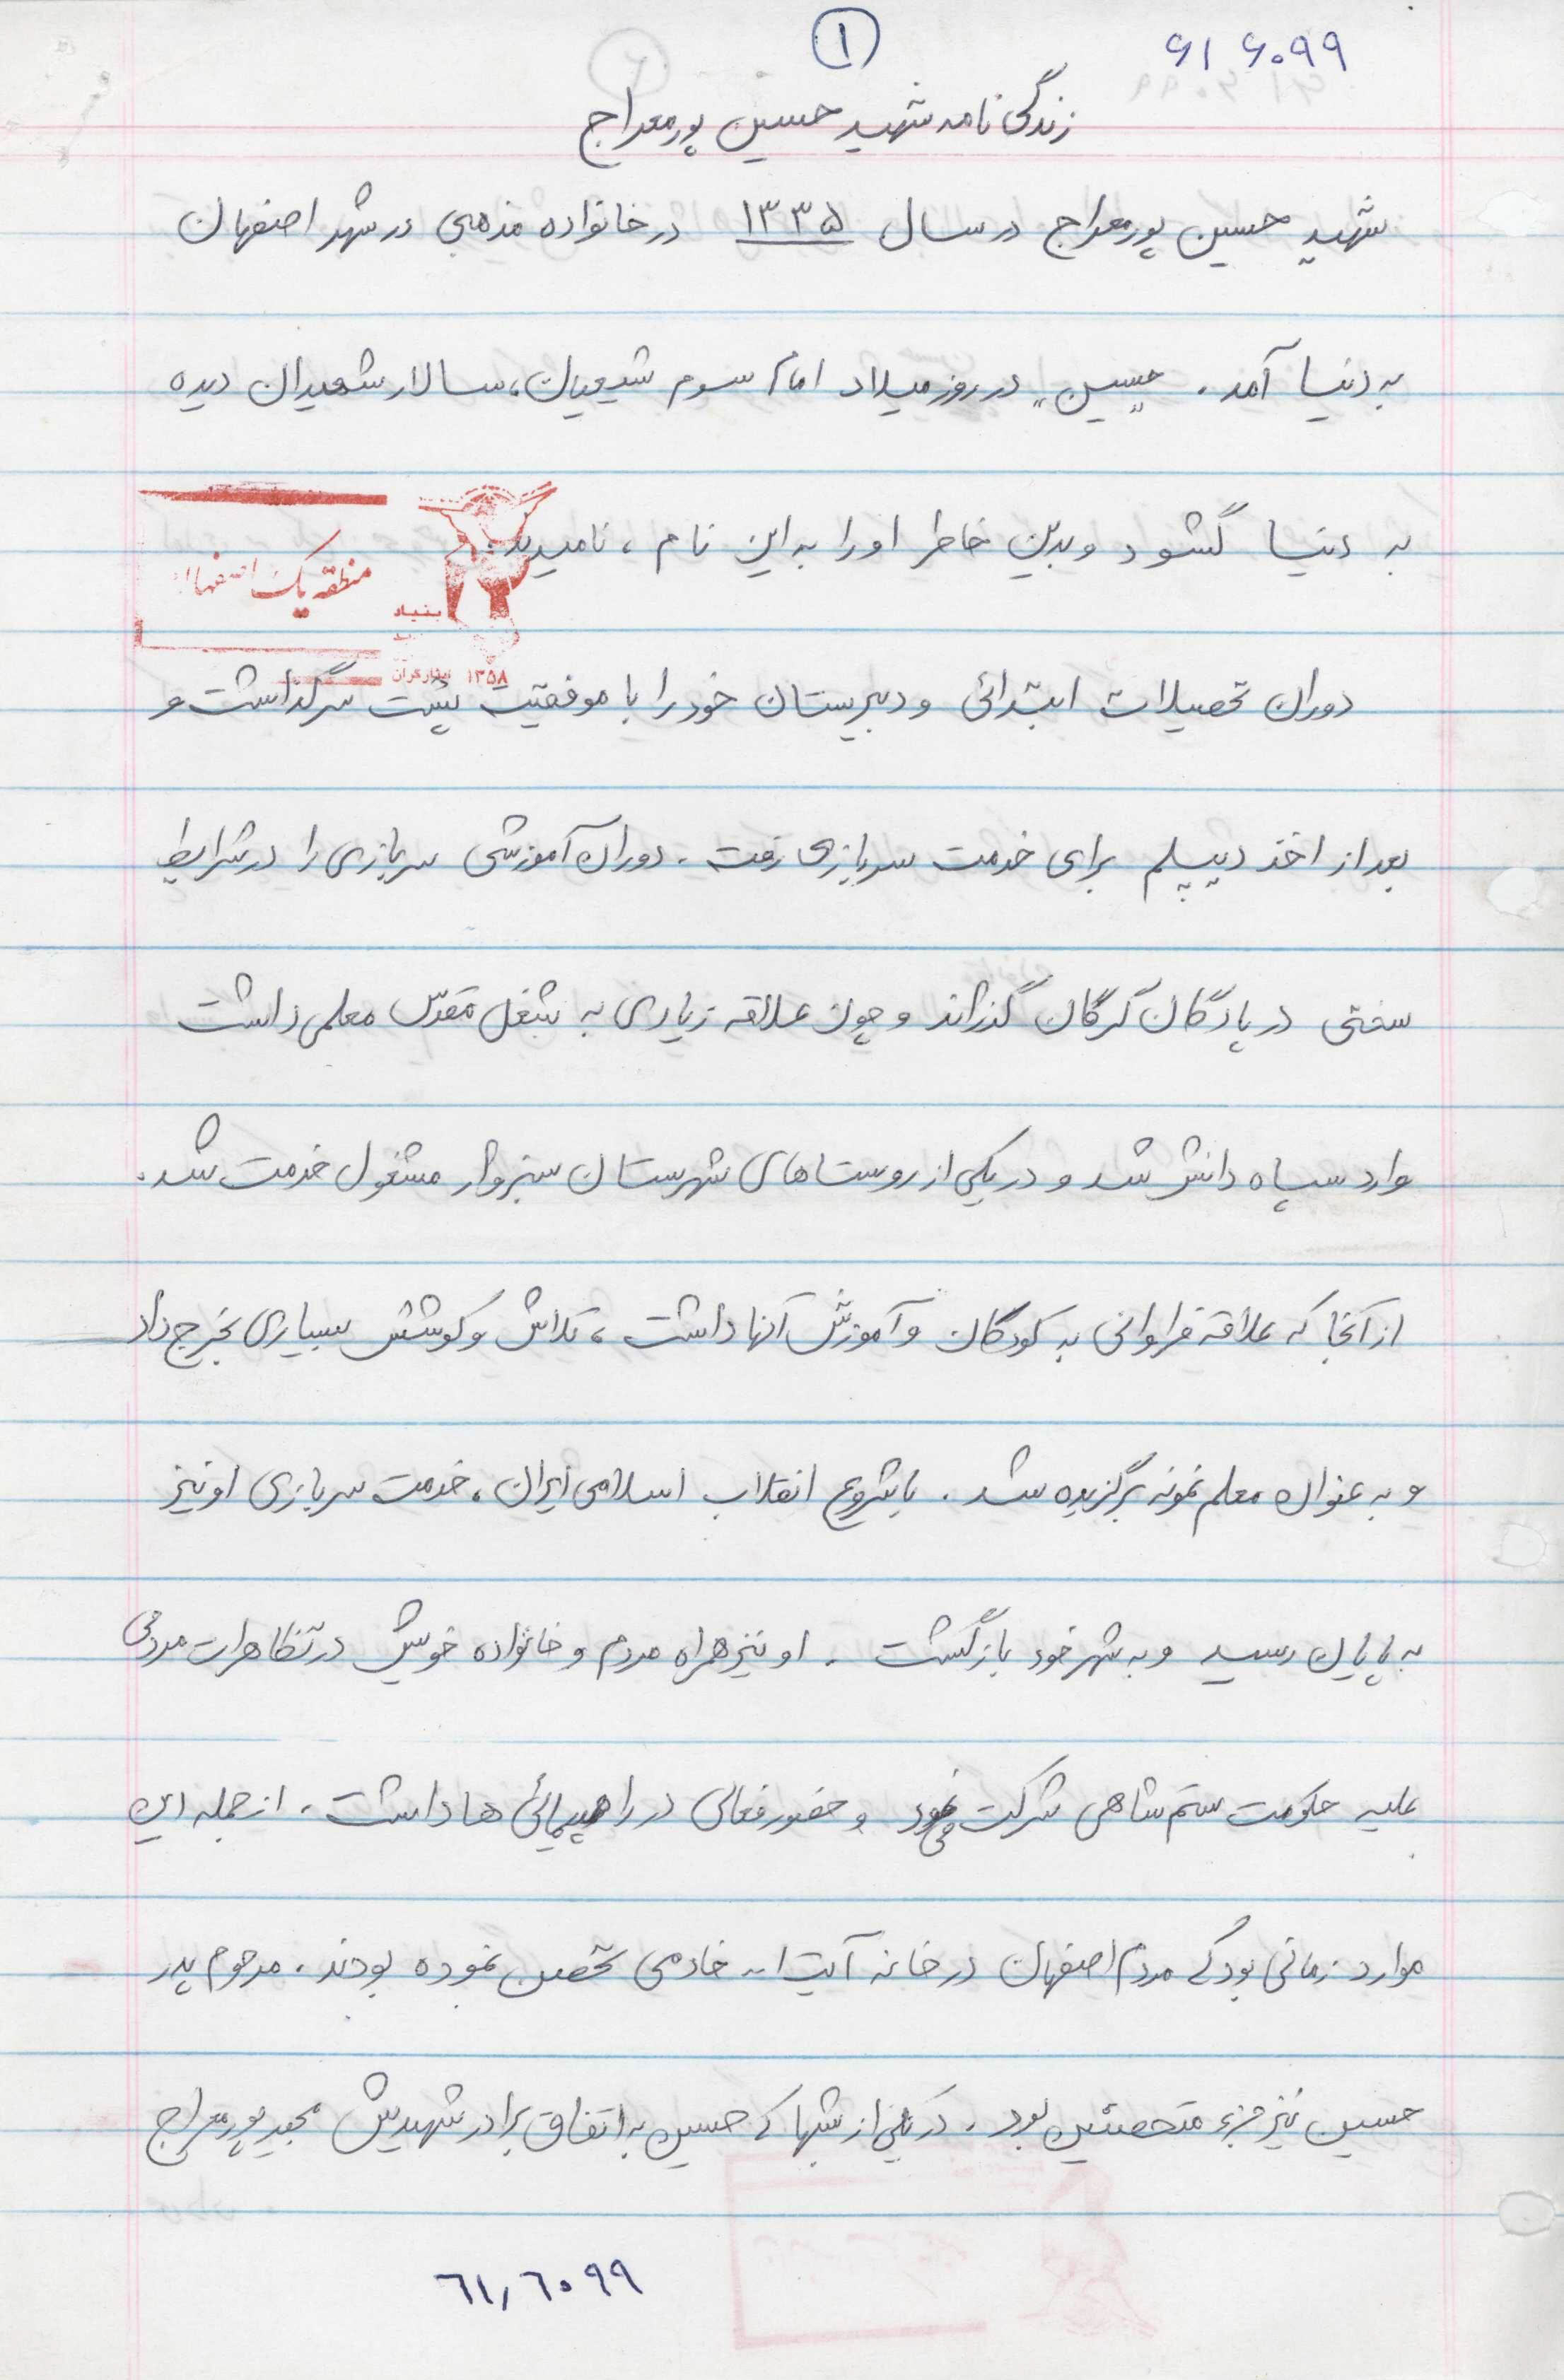 ۶۱ ۶۰۹۹
۱
زندگی نامه شهید حسین پورمعراج
شهید حسین پورمعراج در سال ۱۳۳۵ در خانواده مذهبی در شهر اصفهان
به دنیا آمد. "حسین" در روز میلاد امام سوم شیعیان، سالار شهیدان دیده
به دنیا گشود و بدین خاطر او را به این نام، نامیدند.
منطقه یک اصفهان
بنیاد
۱۳۵۸ ایثارگران
دوران تحصیلات ابتدائی و دبیرستان خود را با موفقیت پشت سر گذاشت و
بعد از اخذ دیپلم برای خدمت سربازی رفت. دوران آموزشی سربازی را در شرایط
سختی در پادگان گرگان گذراند و چون علاقه زیادی به شغل مقدس معلمی داشت
وارد سپاه دانش شد و در یکی از روستاهای شهرستان سبزوار مشغول خدمت شد.
از آنجا که علاقه فراوانی به کودکان و آموزش آنها داشت، تلاش و کوشش بسیاری بخرج داد
و به عنوان معلم نمونه برگزیده شد. با شروع انقلاب اسلامی ایران، خدمت سربازی او نیز
به پایان رسید و به شهر خود بازگشت. او نیز همراه مردم و خانواده خویش در تظاهرات مردمی
علیه حکومت ستم شاهی شرکت می نمود و حضور فعالی در راهپیمائی ها داشت. از جمله این
موارد زمانی بود که مردم اصفهان در خانه آیت ا... خادمی تحصن نموده بودند. مرحوم پدر
حسین نیز جزء متحصنین بود. در یکی از شبها که حسین به اتفاق برادر شهیدش مجید پورمعراج
۶۱٫۶۰۹۹